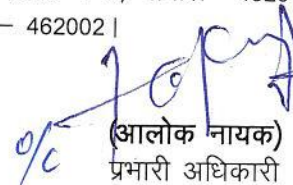 – 462002 |
o/c
(आलोक नायक)
प्रभारी अधिकारी